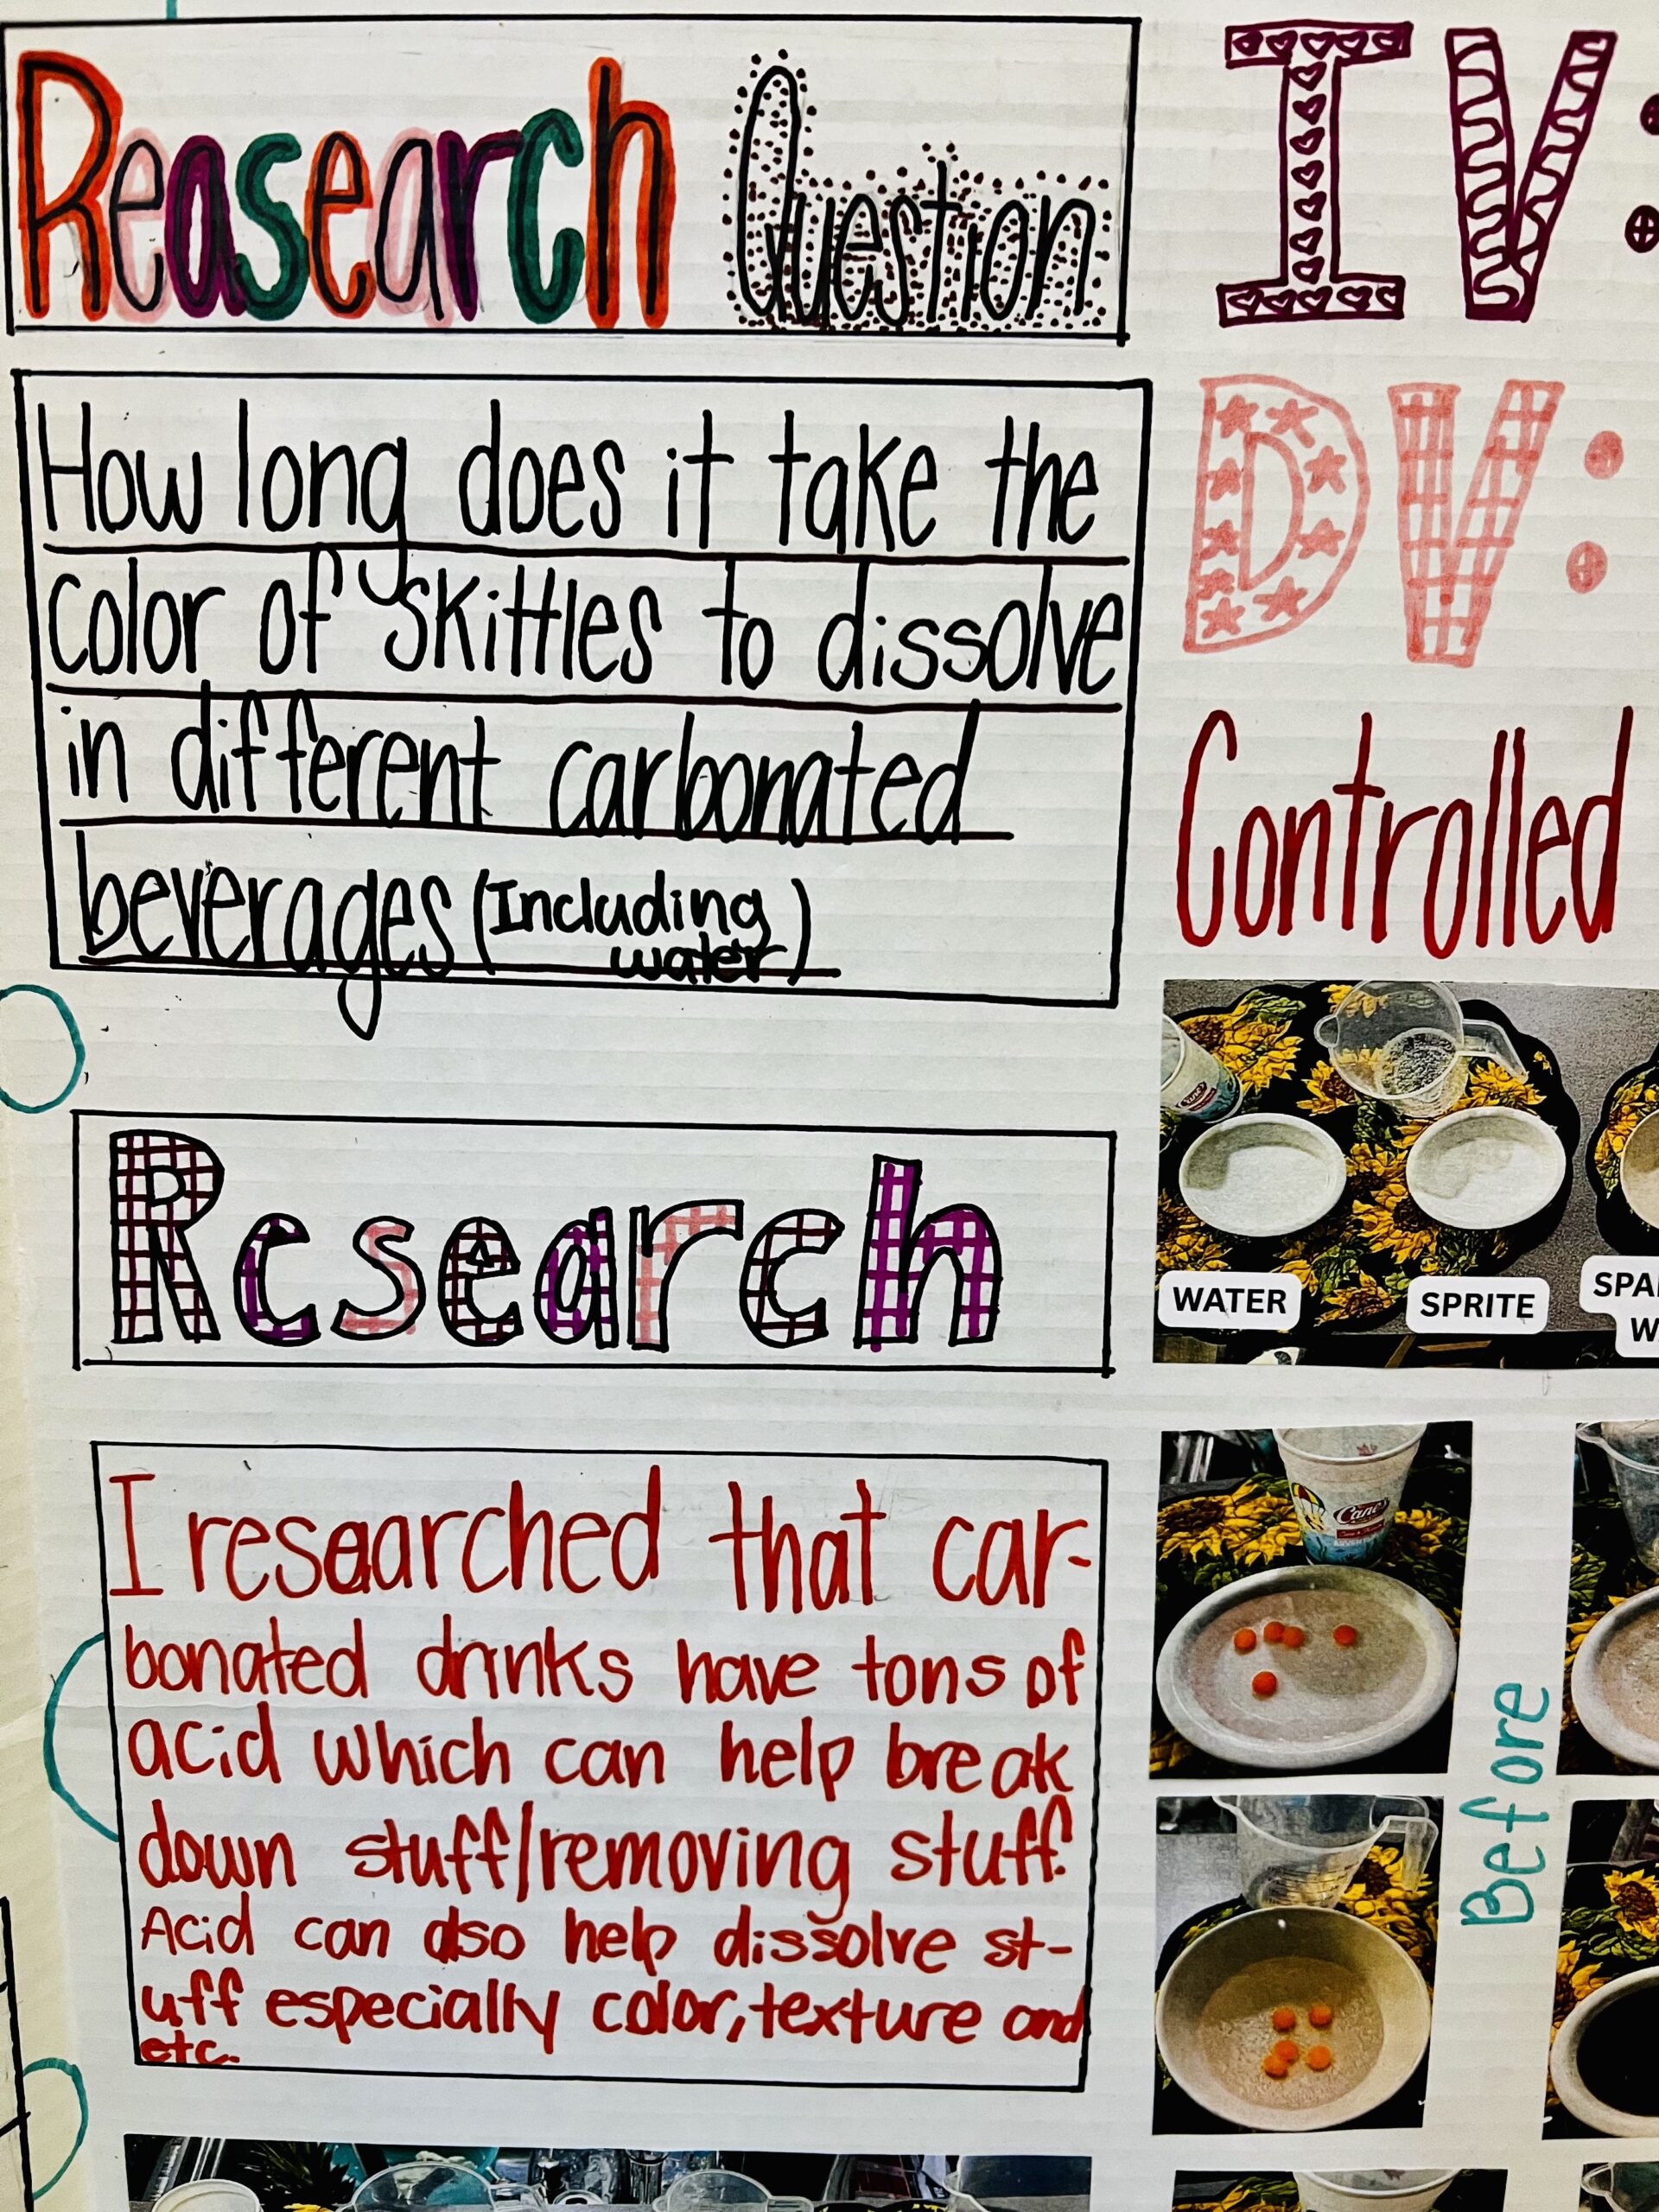 Reasearch Question
How long does it take the
color of skittles to dissolve
in different carbonated
beverages (Including
water)
Research
I researched that car-
bonated drinks have tons of
acid which can help break
down stuff/removing stuff.
Acid can also help dissolve st-
uff especially color, texture and
etc.
IV:
DV:
Controlled
WATER
SPRITE
SPA
W
Cane's
Before